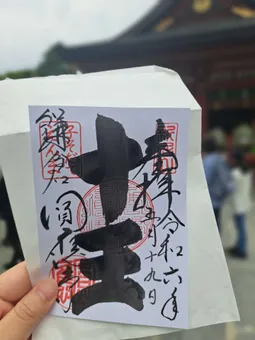 奉拝
令和六年
五月十九日
十王
鎌倉
圓應寺